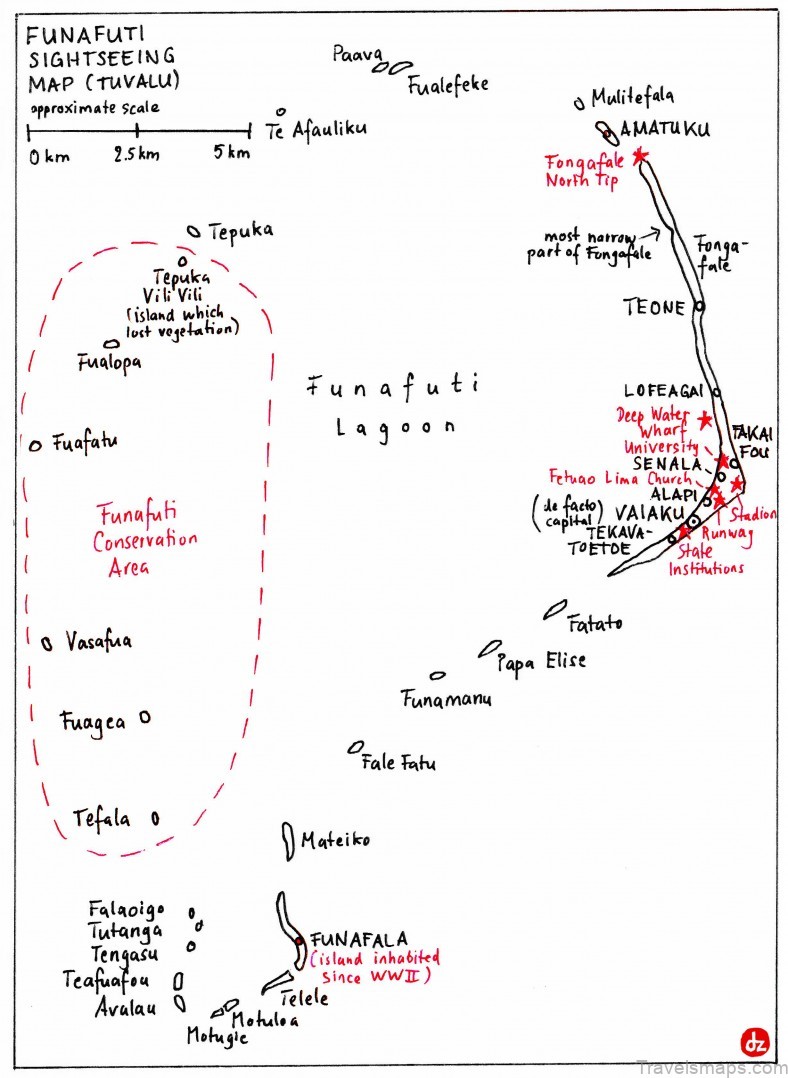 FUNAFUTI
SIGHTSEEING
MAP (TUVALU)
approximate scale
0 km 2.5 km 5 km
Paava
Fualefeke
Te Afauliku
Mulitefala
AMATUKU
Fongafale
North Tip
most narrow
part of Fongafale
Fonga-
fale
Tepuka
Tepuka
Vili Vili
(island which
lost vegetation)
Fualopa
TEONE
Funafuti
Lagoon
LOFEAGAI
Deep Water
Wharf
University
FAKAI
FOU
SENALA
Fetuao Lima Church
ALAPI
(de facto
capital)
VAIAKU
TEKAVA-
TOETOE
Stadion
Runway
State
Institutions
Fuafatu
Funafuti
Conservation
Area
Vasafua
Fuagea
Tefala
Fatato
Papa Elise
Funamanu
Fale Fatu
Mateiko
Falaoigo
Tutanga
Tengasu
Teafuafou
Avalau
FUNAFALA
(island inhabited
since WWII)
Telele
Motuloa
Motugie
dz
Travelsmaps.com